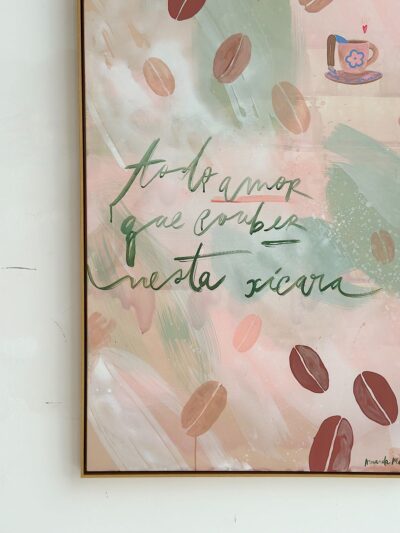 todo amor
que couber
nesta xícara